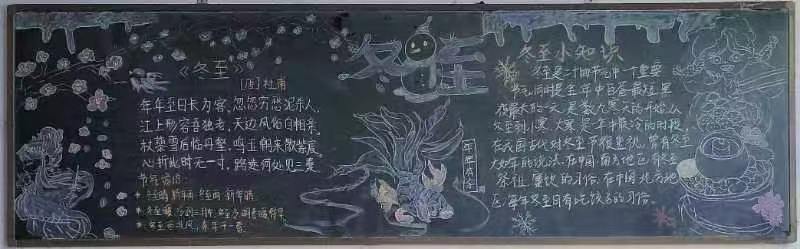 《冬至》
[唐]杜甫
年年至日长为客,忽忽穷愁泥杀人,
江上形容吾独老,天边风俗自相亲,
杖藜雪后临丹壑,鸣玉朝来散紫宸,
心折此时无一寸,路迷何处见三秦
节气谚语:
冬至
年年有余
冬至小知识
冬至是二十四节气中一个重要
节气,同时是全年中白昼最短、黑
夜最长的一天,是数九寒天的开始,从
冬至到小寒、大寒是年中最冷的时段,
在我国古代对冬至节很重视,曾有冬至
大如年的说法,在中国南方地区有冬至
祭祖、宴饮的习俗。在中国北方地
区,每年冬至日有吃饺子的习俗。